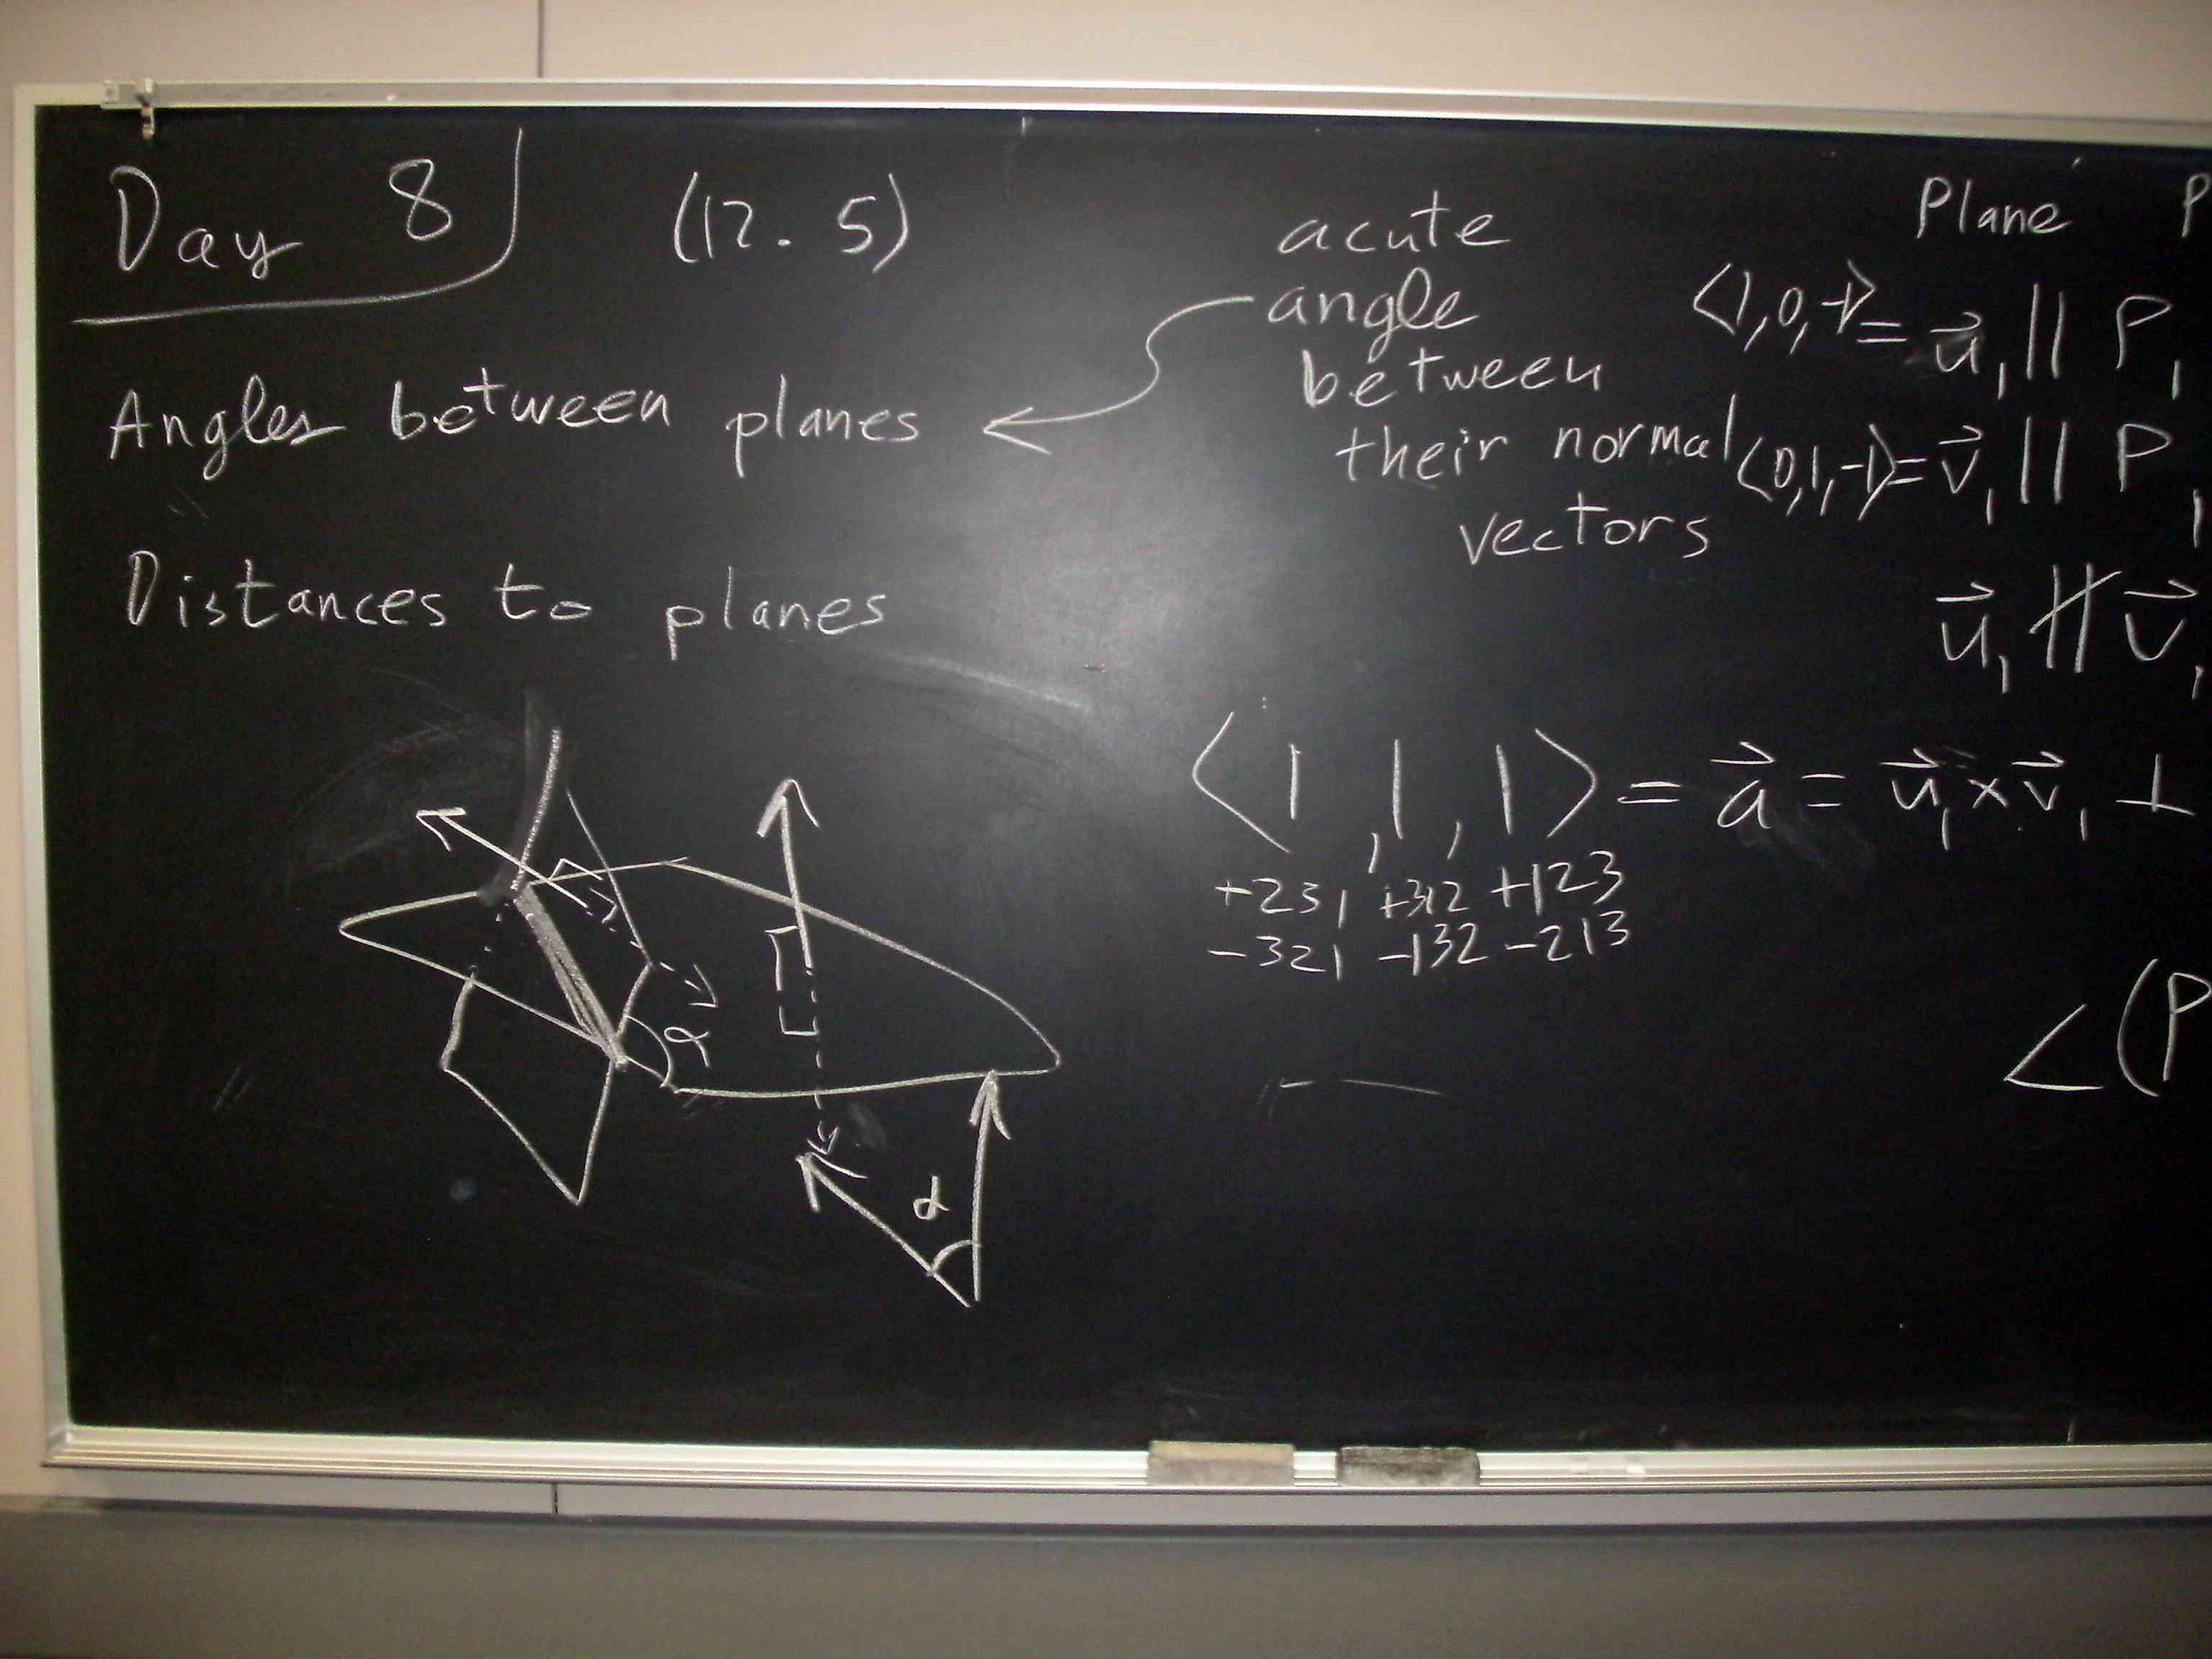 Day 8 (12.5)
Angles between planes
Distances to planes
acute
angle
between
their normal
vectors
Plane P
⟨1,0,-1⟩ = u⃗₁ || P₁
⟨0,1,-1⟩ = v⃗₁ || P₁
u⃗₁ ∦ v⃗₁
⟨1, 1, 1⟩ = a⃗ = u⃗₁ × v⃗₁ ⊥
+231, +312 +123
-321 -132 -213
∠(P
α
α